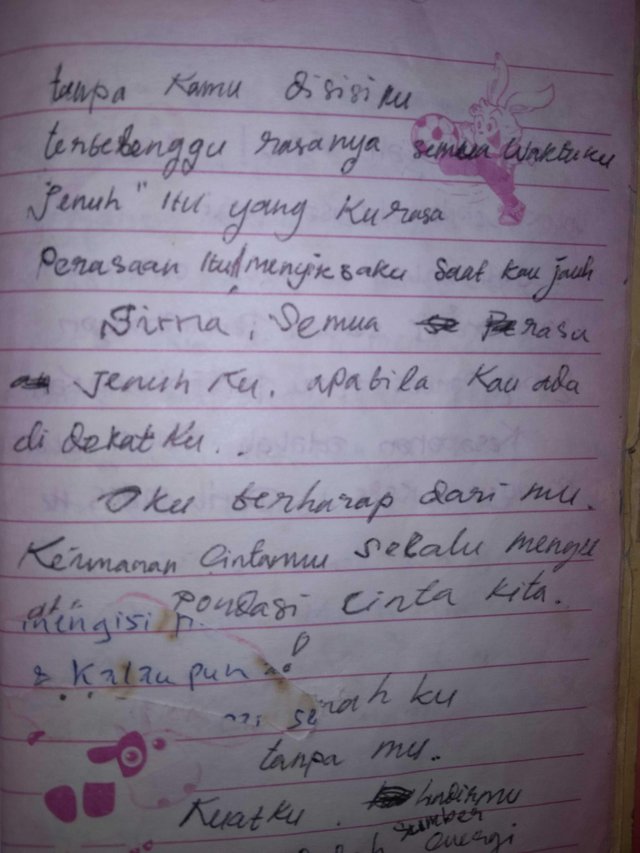 tanpa Kamu disisiku
terbelenggu rasanya semua waktuku
"Jenuh" itu yang Kurasa
Perasaan itu menyiksaku saat kau jauh
Sirna, Semua Perasa
an Jenuh Ku. apabila Kau ada
di dekat Ku..
Ku berharap dari mu.
Keimanan Cintamu selalu mengu
ati pondasi cinta kita.
mengisi
& Kalaupun
ah ku
tanpa mu.
Kuatku. hadirmu
sumber
energi